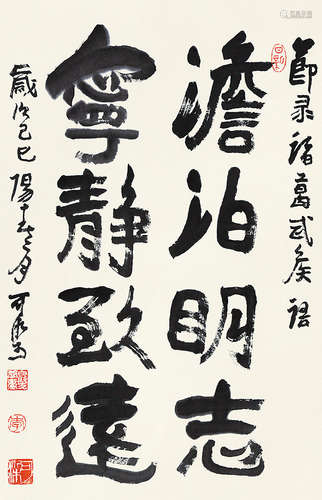 節录諸葛武侯語
澹泊明志
寧静致遠
歲次己巳陽春月可